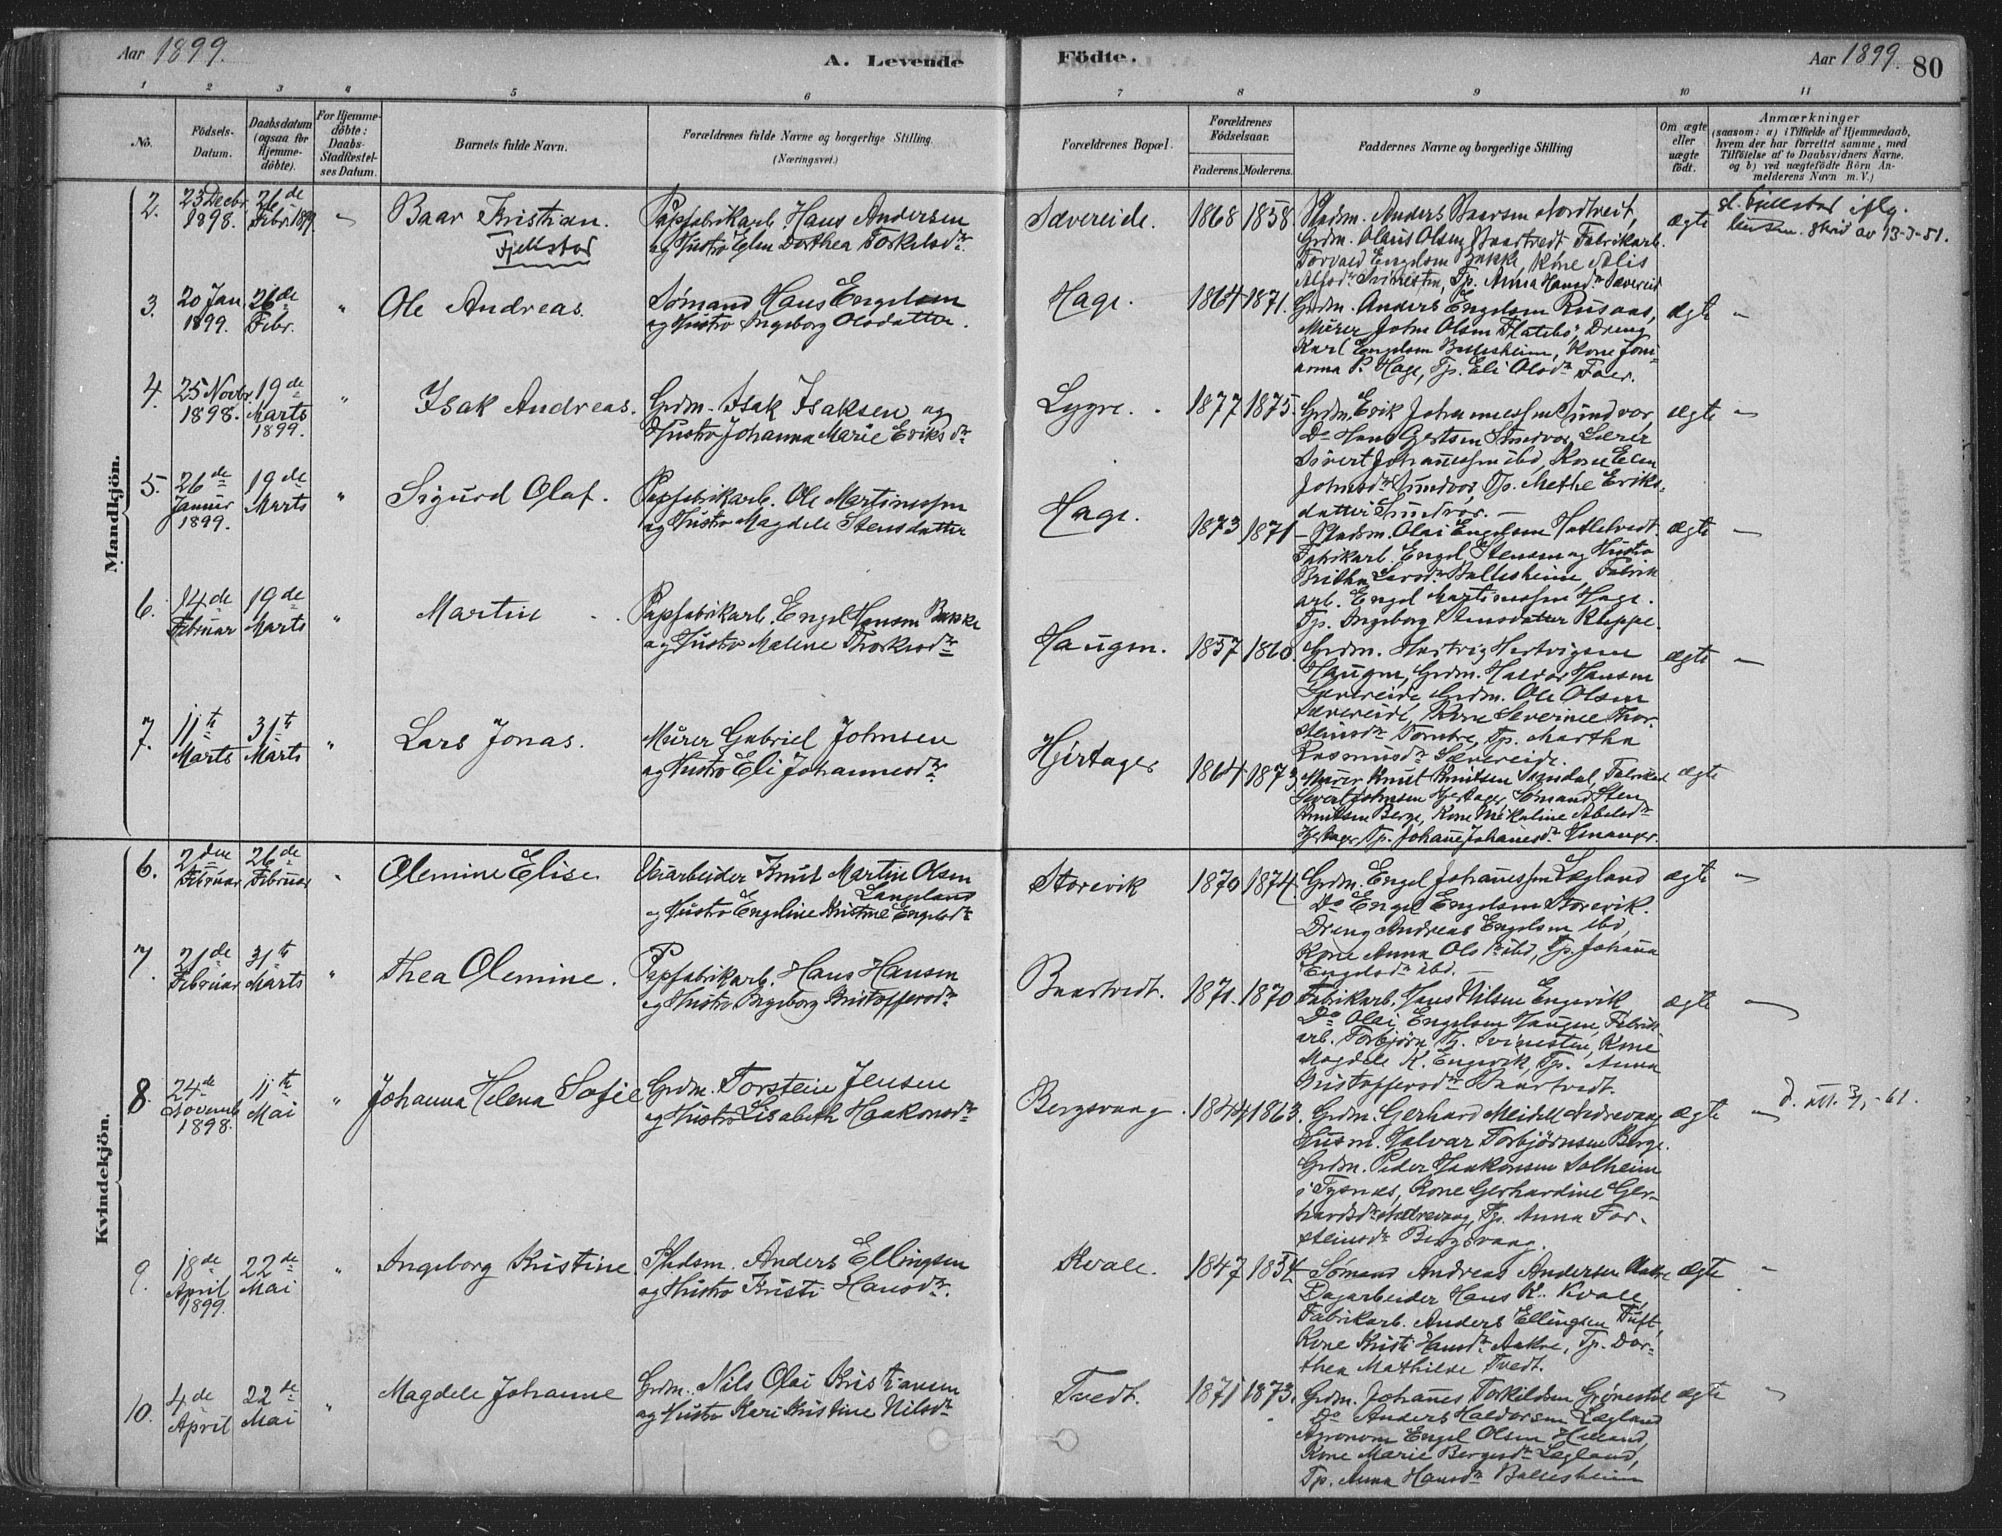 Aar 1899. A. Levende Födte. Aar 1899. 80
1 2 3 4 5 6 7 8 9 10 11
No.
Födsels-
Datum.
Daabsdatum
(ogsaa for
Hjemme-
döbte).
For Hjemme-
döbte:
Daabs-
Stadfæstel-
ses Datum.
Barnets fulde Navn.
Forældrenes fulde Navne og borgerlige Stilling
(Næringsvei.)
Forældrenes Bopæl.
Forældrenes
Födselsaar.
Faderens. Moderens.
Faddernes Navne og borgerlige Stilling
Om ægte
eller
uægte
födt.
Anmærkninger
(saasom: a) i Tilfælde af Hjemmedaab,
hvem der har forrettet samme, med
Tilföielse af to Daabsvidners Navne.
og b) ved uægtefödte Börn An-
melderens Navn m. V.)
Mandkjön.
2.
23 Decbr
1898.
26de
Febr. 1899
Baar Kristian.
Fjellstad
Papfabrikarb. Hans Andersen
og Hustro Elen Dorthea Torkelsdr
Sævereide.
1868 1858.
Pladsm. Anders Baarsen Nordtveit,
Grdm. Olaus Olsen Baartvedt Fabrikarb.
Torvald Engelsen Bakke, Kone Alis
Alfsdr Svinesten, Tp. Anna Hansdr Sævereid
ægte
sl. Fjellstad iflg.
lensm. skriv av 13-3-51.
3.
20 Jan
1899.
26de
Febr.
"
Ole Andreas.
Sømand Hans Engelsen
og Hustro Ingeborg Olsdatter.
Hage.
1864 1871.
Grdm. Anders Engelsen Rusaas,
Murer John Olsen Flatebø Dreng
Karl Engelsen Baltesheim, Kone Joni-
anna P. Hage, Tp. Eli Olsdr Foer.
ægte "
4.
25 Novbr.
1898.
19de
Marts
1899.
"
Isak Andreas.
Grdm. Isak Isaksen og
Hustro Johanna Marie Eriksdr
Lygre.
1877 1875.
Grdm. Erik Johannessen Sundvor
Do Hans Gertsen Sundvor, Lærer
Sivert Johannessen ibd, Kone Elen
Johnsdr Sundvor, Tp. Methe Eriks-
datter Sundvor.
ægte "
5.
26de
Januar
1899.
19de
Marts
"
Sigurd Olaf.
Papfabrikarb. Ole Martinussen
og Hustro Magdele Stensdatter
Hage.
1873 1871
Pladsm. Olai Engelsen Hatletvedt.
Fabrikarb. Engel Stensen og Hustro
Britha Larsdr Baltesheim, Fabrik
arb. Engel Martinussen Hage.
Tp. Ingeborg Stensdatter Kleppe.
ægte "
6.
14de
Februar
19de
Marts
"
Martin
Papfabrikarb. Engel Hansen Bakke
og Hustro Malene Thorkelsdr
Haugen.
1857 1860.
Grdm. Hertvig Hertvigsen
Haugen, Grdm. Halvor Hansen
Sævereide, Grdm. Ole Olsen
Sævereide, Kone Severine Thor-
steinsdr Torntre, Tp. Martha
Rasmusdr Sævereide.
ægte "
7.
11te
Marts
31te
Marts
"
Lars Jonas.
Murer Gabriel Johnsen
og Hustro Eli Johannesdr
Hjertager
1864 1873.
Murer Knut Knutsen Sandal, Fabrikarb
Sivert Johnsen Hjertager, Sømand Sten
Knutsen Berge, Kone Mikaline Abelsdr
Hjertager, Tp. Johanne Johannesdr Omanger.
ægte
Kvindekjön.
6.
2den
Februar
26de
Februar
"
Olemine Elise
Veiarbeider Knut Martin Olsen
Langeland
og Hustro Engeline Kristine Engelsdr
Storevik
1870 1874.
Grdm. Engel Johannessen Lægland
Do Engel Engelsen Storevik.
Dreng Andreas Engelsen ibd,
Kone Anna Olsdr ibd, Tp. Johanna
Engelsdr ibd.
ægte "
7.
21de
Februar
31te
Marts
"
Thea Olemine.
Papfabrikarb. Hans Hansen
og Hustro Ingeborg Kristoffersdr
Baartvedt.
1871. 1870
Fabrikarb. Hans Nilsen Engevik
Do Olai Engelsen Haugen, Fabrik-
arb. Torbjørn Tj. Svinesten, Kone
Magdele K. Engevik, Tp. Anna
Kristoffersdr Baartvedt.
ægte "
8.
24de
Novemb.
1898.
11te
Mai
"
Johanna Helena Sofie
Grdm. Torstein Jensen
og Hustro Lisabeth Haakonsdr
Bergsvaag.
1844 1863.
Grdm. Gerhard Meidell Nedrevaag
Husm. Halvar Torbjørnsen Berge.
Grdm. Peder Haakonsen Solheim
i Tysnes, Kone Gerhardine Ger-
hardsdr Nedrevaag, Tp. Anna Tor-
steinsdr Bergsvaag.
ægte "
9.
18de
April
1899.
22de
Mai
"
Ingeborg Kristine.
Pladsm. Anders Ellingsen
og Hustro Kristi Hansdr.
Kvale.
1847 1854
Sømand Andreas Andersen Aakre
Dagarbeider Hans K. Kvale,
Fabrikarb. Anders Ellingsen Tuft,
Kone Kristi Hansdr Aakre, Tp. Dor-
thea Mathilde Tvedt.
ægte "
10.
4de
April
22de
Mai
"
Magdele Johanne
Grdm. Nils Olai Kristiansen
og Hustro Kari Kristine Nilsdr
Tvedt.
1871 1873.
Grdm. Johannes Torkildsen Grønestøl
Do Anders Haldorsen Lægland
Agronom Engel Olsen Helland,
Kone Marie Bergesdr Lægland,
Tp. Anna Hansdr Baltesheim
ægte "